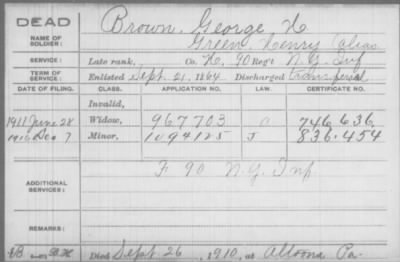 DEAD
Brown, George H
NAME OF SOLDIER:
Green, Henry (alias
SERVICE: Late rank, Co. H, 90 Reg't N.Y. Inf
TERM OF SERVICE: Enlisted Sept. 21, 1864 Discharged transferred
DATE OF FILING. CLASS. APPLICATION NO. LAW. CERTIFICATE NO.
Invalid,
1911 June 28 Widow, 967703 746636
1916 Dec 7 Minor, 1094125 J 836.454
F 90 N.Y. Inf
ADDITIONAL SERVICES:
REMARKS:
Died Sept 26, 1910, at Altoona Pa.